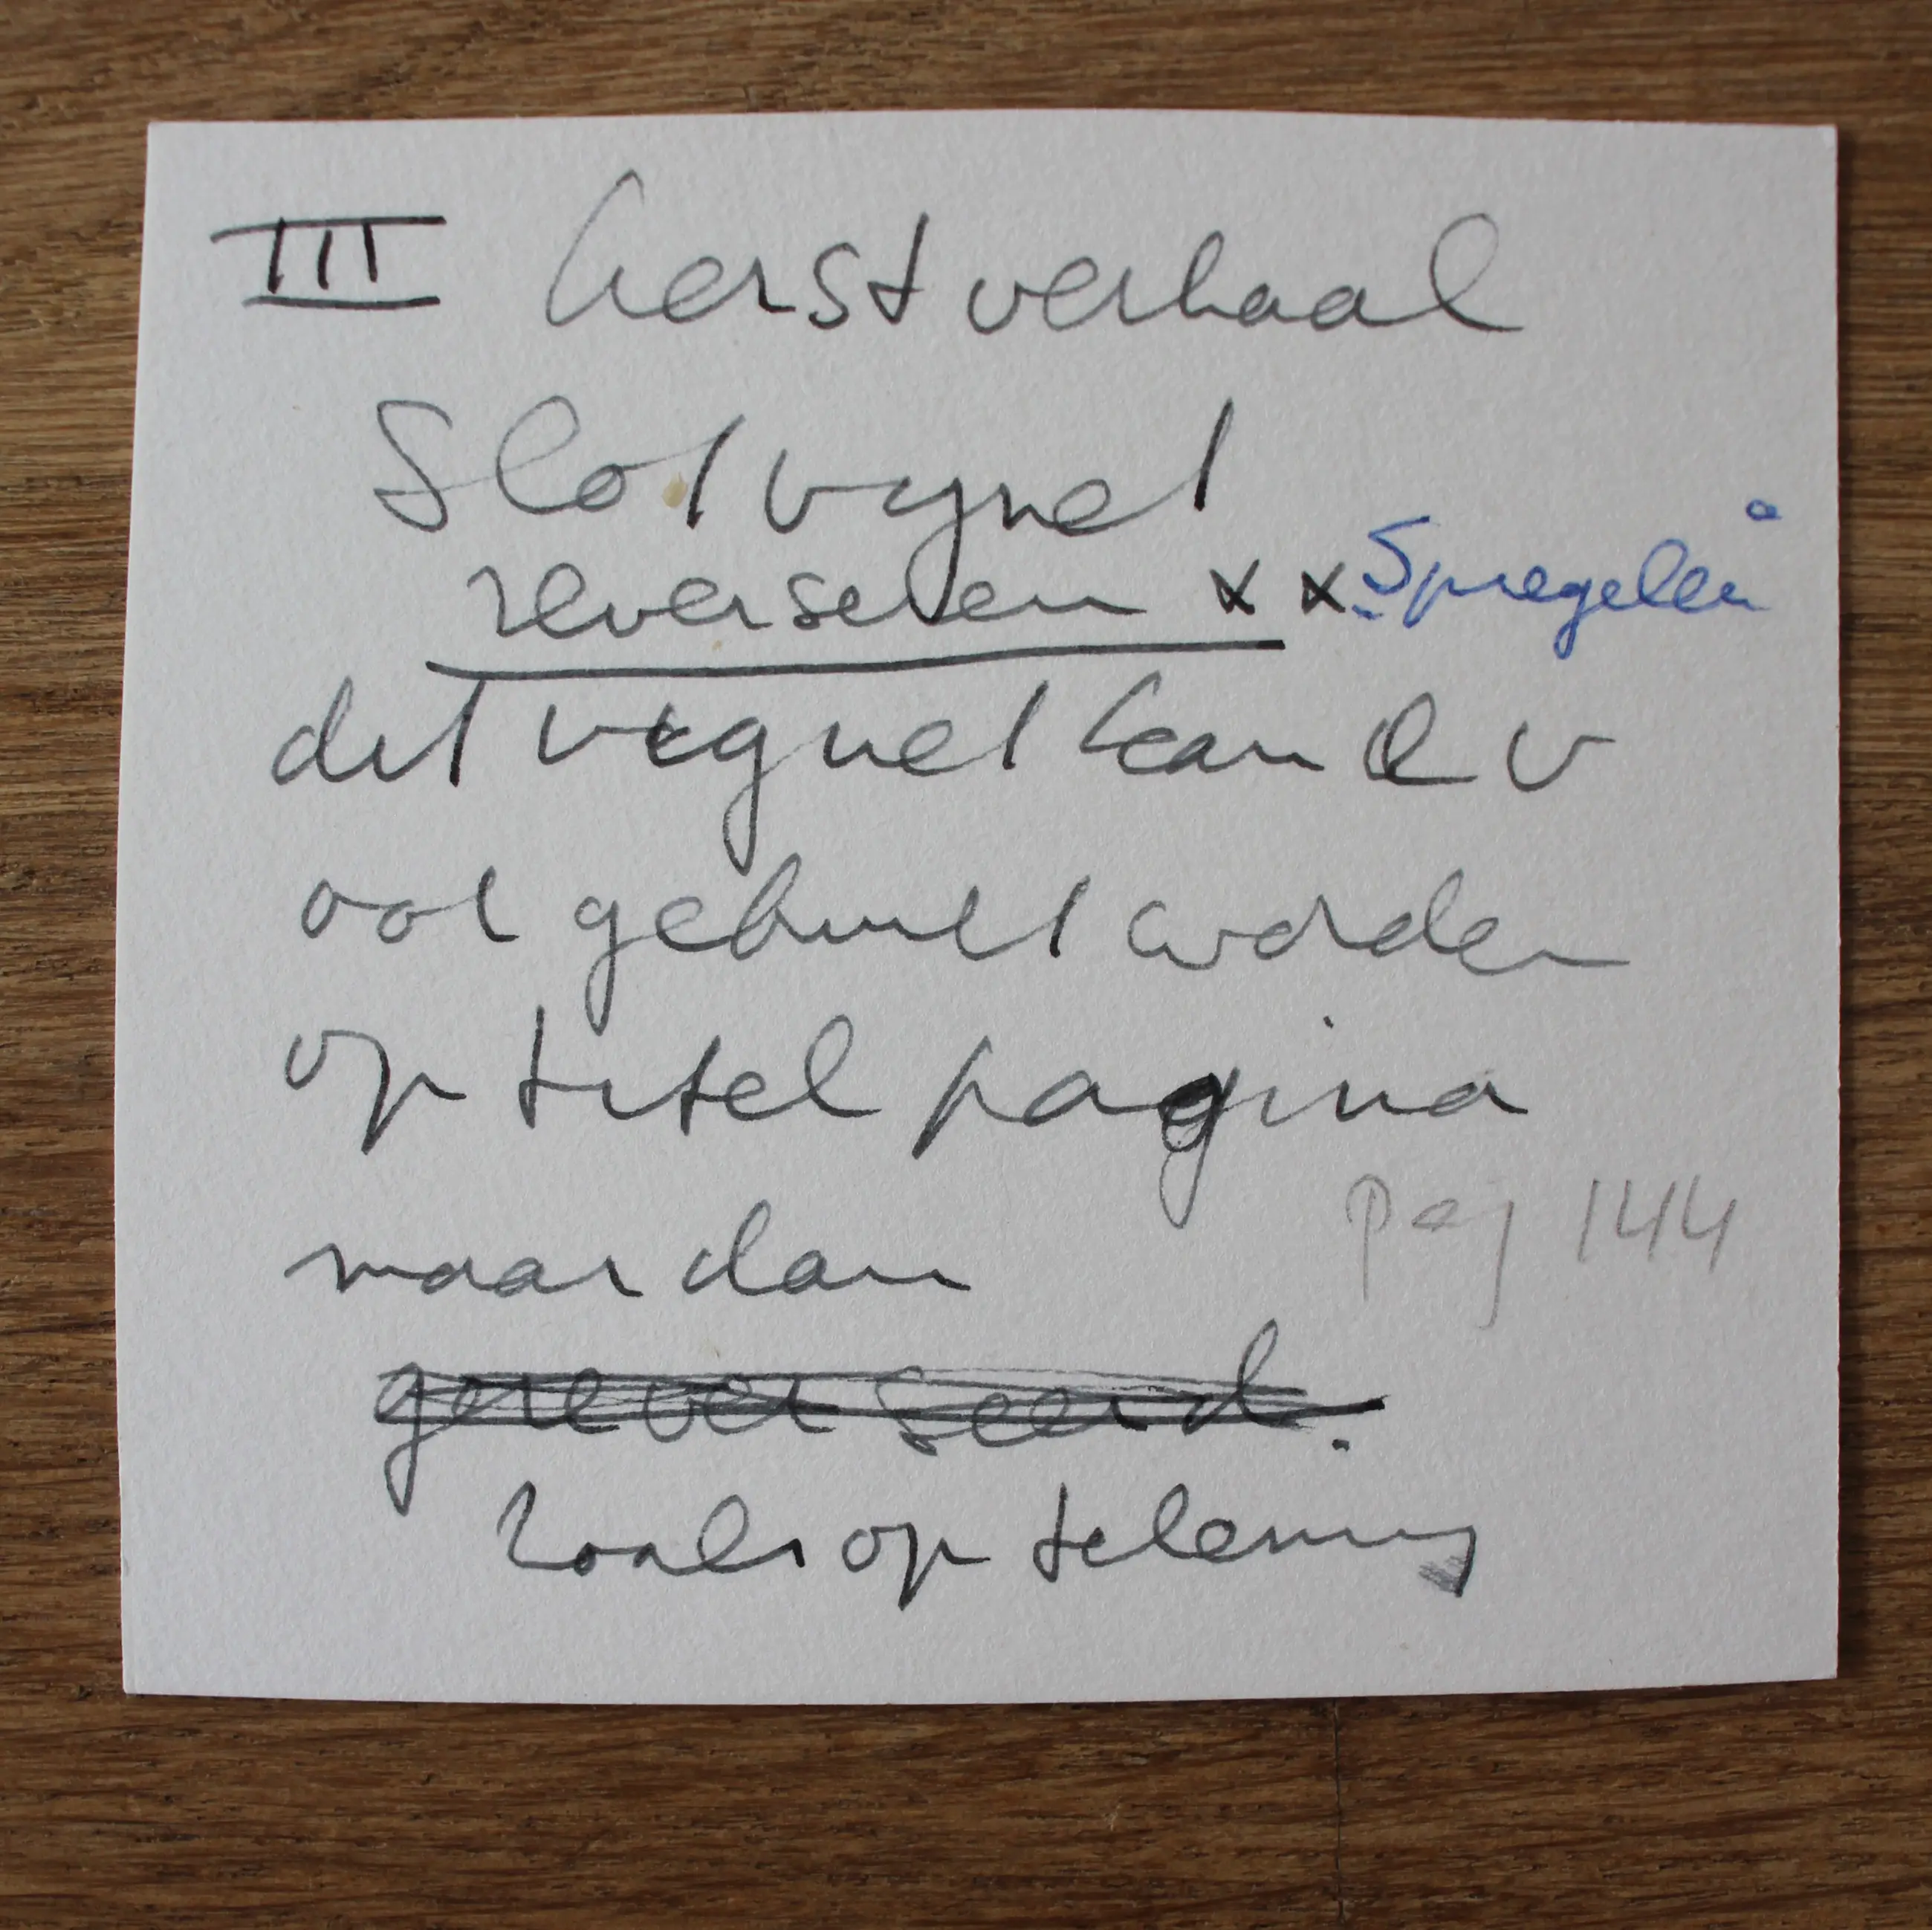 III Kerstverhaal
Slotvignet
reverseren x x Spiegelen
dit vignet kan e v
ook gebruikt worden
op titel pagina
maar dan
pag 144
gereverseerd.
zoals op tekening